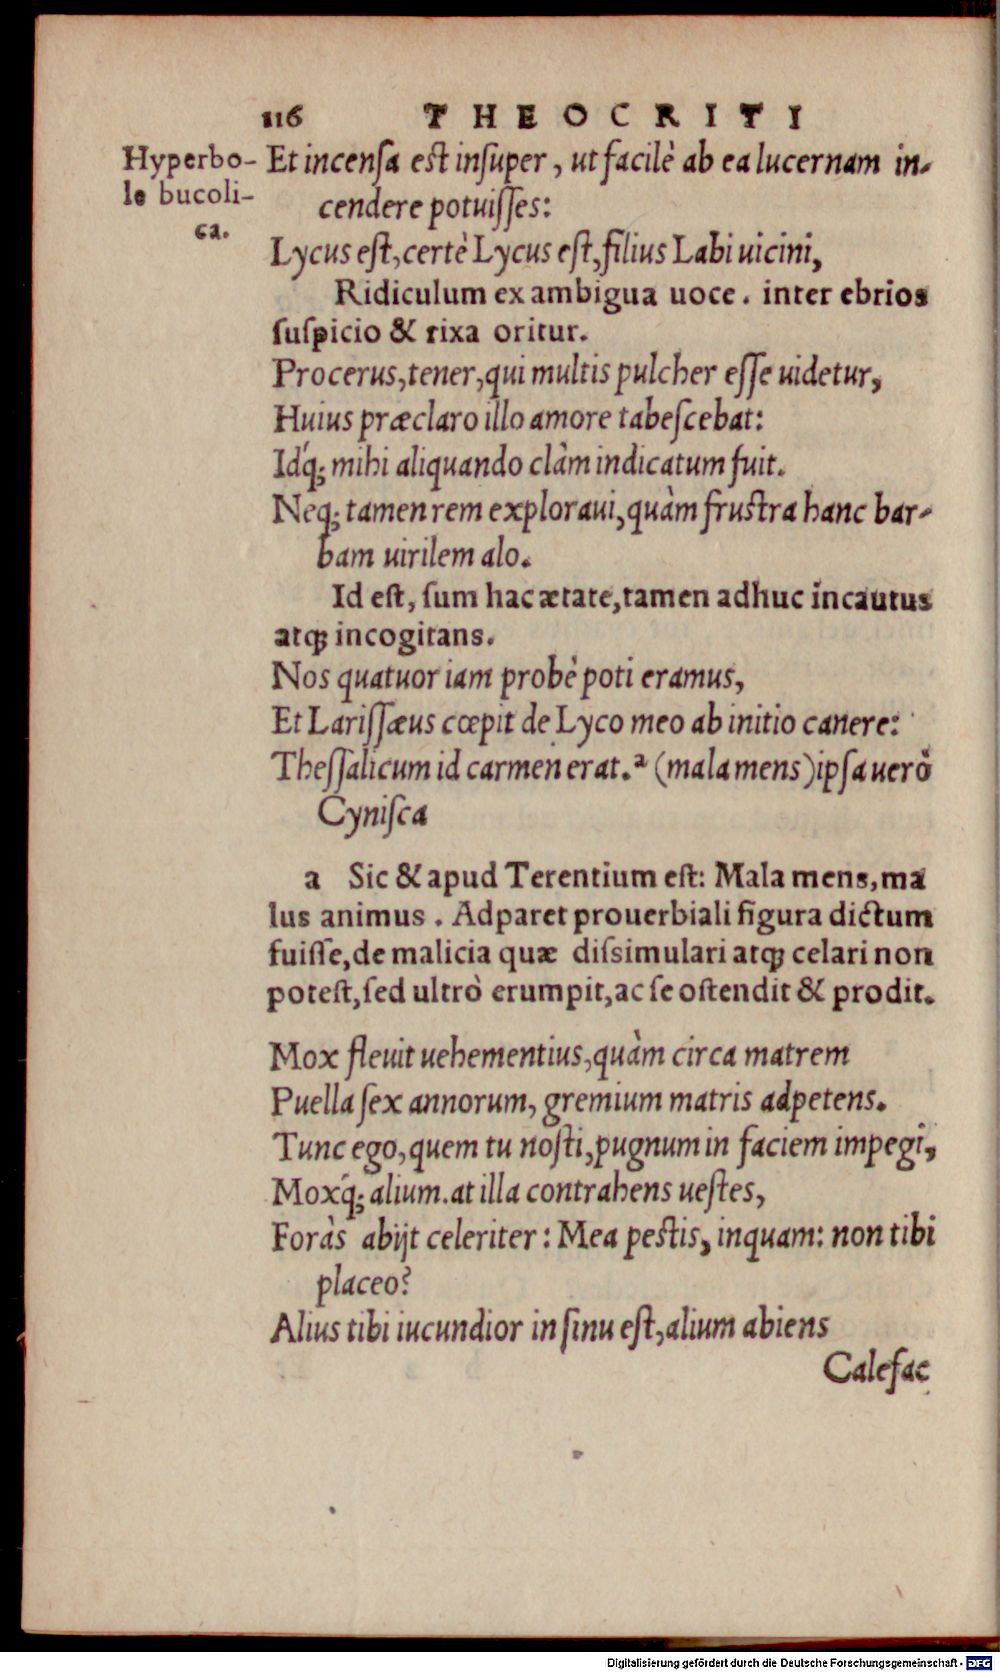 116 THEOCRITI
Hyperbo-
le bucoli-
ca.
Et incensa est insuper, ut facilè ab ea lucernam in-
cendere potuisses:
Lycus est, certè Lycus est, filius Labi uicini,
Ridiculum ex ambigua uoce. inter ebrios
suspicio & rixa oritur.
Procerus, tener, qui multis pulcher esse uidetur,
Huius præclaro illo amore tabescebat:
Idq́; mihi aliquando clàm indicatum fuit.
Neq; tamen rem exploraui, quàm frustra hanc bar-
bam uirilem alo.
Id est, sum hac ætate, tamen adhuc incautus
atq; incogitans.
Nos quatuor iam probè poti eramus,
Et Larissæus cœpit de Lyco meo ab initio canere:
Thessalicum id carmen erat. a (mala mens) ipsa uerò
Cynisca
a Sic & apud Terentium est: Mala mens, ma
lus animus. Adparet prouerbiali figura dictum
fuisse, de malicia quæ dissimulari atq; celari non
potest, sed ultrò erumpit, ac se ostendit & prodit.
Mox fleuit uehementius, quàm circa matrem
Puella sex annorum, gremium matris adpetens.
Tunc ego, quem tu nosti, pugnum in faciem impegi,
Moxq́; alium. at illa contrahens uestes,
Foràs abijt celeriter: Mea pestis, inquam: non tibi
placeo?
Alius tibi iucundior in sinu est, alium abiens
Calefac
Digitalisierung gefördert durch die Deutsche Forschungsgemeinschaft - DFG